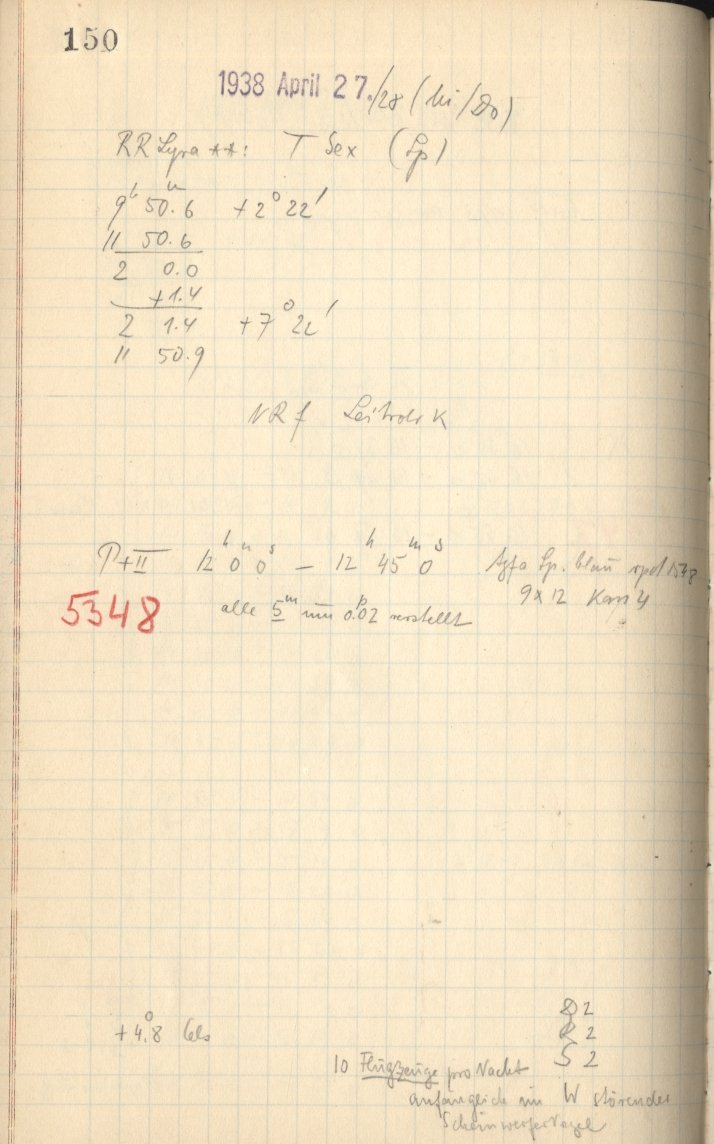 150
1938 April 27./28 (Mi/Do)
RR Lyra **: T Sex (Sp)
9ʰ 50.ᵐ6 +2° 22′
11 50.6
2 0.0
+1.4
2 1.4 +7° 22′
11 50.9
NRf Leitrohr K
P+II 12ʰ 0ᵐ 0ˢ — 12ʰ 45ᵐ 0ˢ Agfa Sp. blau rpd 1548
9x12 Kass 4
5348 alle 5ᵐ um 0.ᵖ02 verstellt
+4.°8 Cels
D 2
R 2
S 2
10 Flugzeuge pro Nacht
anfänglich im W störender
Scheinwerferkegel